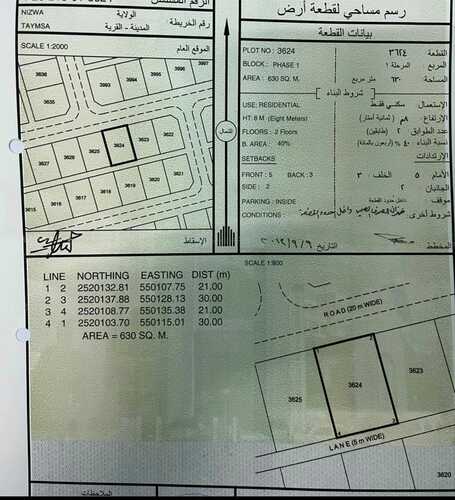 رسم مساحي لقطعة أرض
بيانات القطعة
NIZWA
الولاية
TAYMSA
المدينة - القرية
رقم الخريطة
SCALE 1:2000
الموقع العام
PLOT NO : 3624
٣٦٢٤
القطعة
BLOCK : PHASE 1
المرحلة ١
المربع
AREA : 630 SQ. M.
٦٣٠ متر مربع
المساحة
شروط البناء
USE: RESIDENTIAL
سكني فقط
الإستعمال
HT: 8 M (Eight Meters)
٨م (ثمانية أمتار)
الارتفاع
FLOORS : 2 Floors
٢ (طابقين)
عدد الطوابق
B. AREA : 40%
٤٠% (أربعون بالمائة)
نسبة البناء
SETBACKS
الإرتدادات
FRONT : 5 BACK : 3
الخلف ٣
الأمام ٥
SIDE : 2
٢
الجانبان
PARKING : INSIDE
داخل حدود القطعة
موقف
CONDITIONS :
شروط أخرى
المخطط
التاريخ ٢٠١٢/٩/٦
3636
3635
3996
3995
3997
3627
3626
3625
3624
3623
3622
3615
3616
3617
3618
3619
3620
3621
الشمال
الإسقاط
SCALE 1:500
LINE NORTHING EASTING DIST (m)
1 2 2520132.81 550107.75 21.00
2 3 2520137.88 550128.13 30.00
3 4 2520108.77 550135.38 21.00
4 1 2520103.70 550115.01 30.00
AREA = 630 SQ. M.
ROAD (20 m WIDE)
3625
3624
3623
LANE (5 m WIDE)
3620
الملاحظات